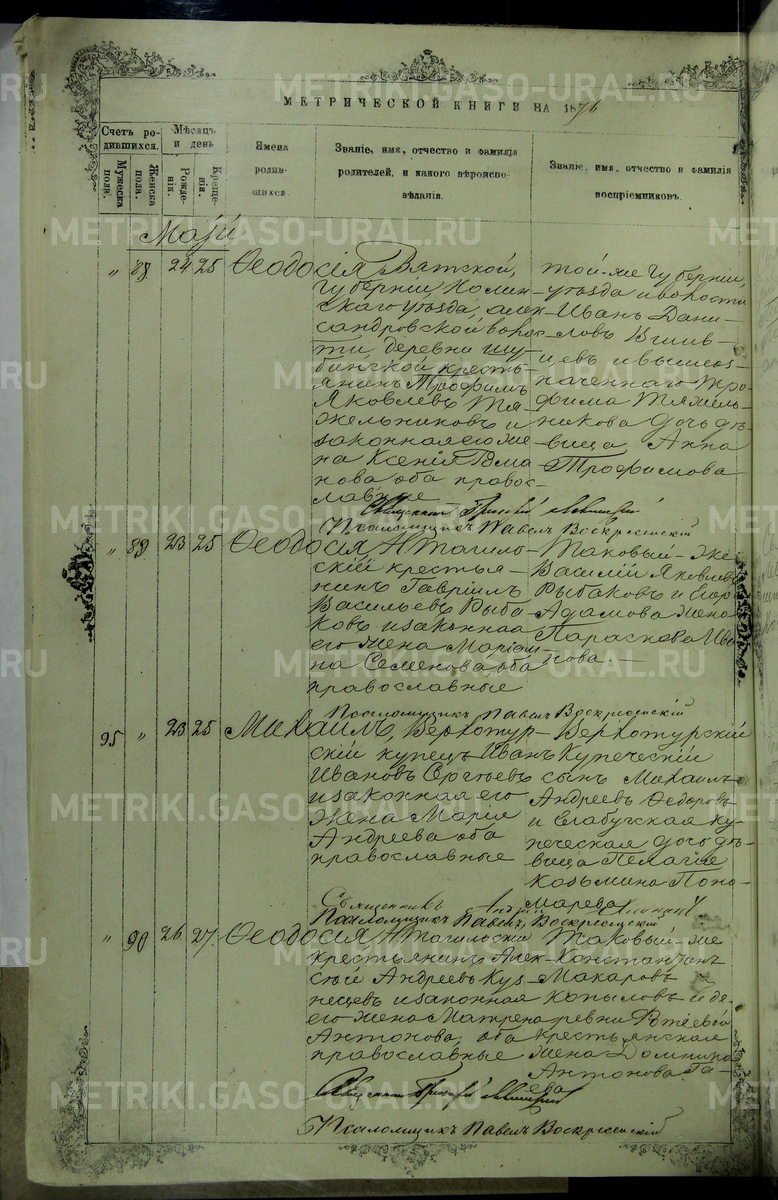 МЕТРИЧЕСКОЙ КНИГИ НА 1876
Счетъ ро-
дившихся.
Мѣсяцъ
и день
Мужеска
пола.
Женска
пола.
Рожде-
нія.
Креще-
нія.
Имена
родив-
шихся.
Званіе, имя, отчество и фамилія
родителей, и какого вѣроиспо-
вѣданія.
Званіе, имя, отчество и фамилія
воспріемниковъ.
Маій
" 88 24 25 Ѳеодосія
Вятской,
губерніи, Нолин-
скаго уѣзда, алек-
сандровской волос-
ти, деревни
крестья-
янинъ Трофимъ
Яковлевъ Тя-
жельниковъ и
законная его же-
на Ксенія Рома-
нова оба правос-
лавные
той-же губерніи,
уѣзда и волости
Иванъ Дани-
ловъ
и вышеоз-
наченнаго Тро-
фима Тяжель-
никова дочь дѣ-
вица Анна
Трофимова
Священникъ Григорій
Псаломщикъ Павелъ Воскресенскій
" 89 23 25 Ѳеодосія
Н Тагиль-
скій крестья-
нинъ Гавріилъ
Васильевъ Рыба-
ковъ и законная
его жена Маріам-
на Семенова, оба
православные
Таковый-же
Василій Яковлевъ
Рыбаковъ и Егора
Адамова жена
Параскова Ива-
нова.
Псаломщикъ Павелъ Воскресенскій
95 " 23 25 Михаилъ,
Верхотур-
скій купецъ Иванъ
Ивановъ Сергѣевъ
и законная его
жена Марія
Андреева оба
православные
Верхотурскій
Купеческій
сынъ Михаилъ
Андреевъ Ѳедоровъ
и Елабужская ку-
печеская дочь дѣ-
вица Пелагія
Козьмина Поно-
марева
Священникъ
Псаломщикъ Павелъ Воскресенскій
" 90 26 27 Ѳеодосія
Н Тагильскій
крестьянинъ Алек-
сѣй Андреевъ Куз-
нецевъ и законная
его жена Матрена
Антонова, оба
православные
Таковый же
Константинъ
Макаровъ
Копыловъ и де-
ревни
крестьянская
жена Домника
Антонова Га-
ева
Священникъ Григорій
Псаломщикъ Павелъ Воскресенскій
METRIKI.GASO-URAL.RU